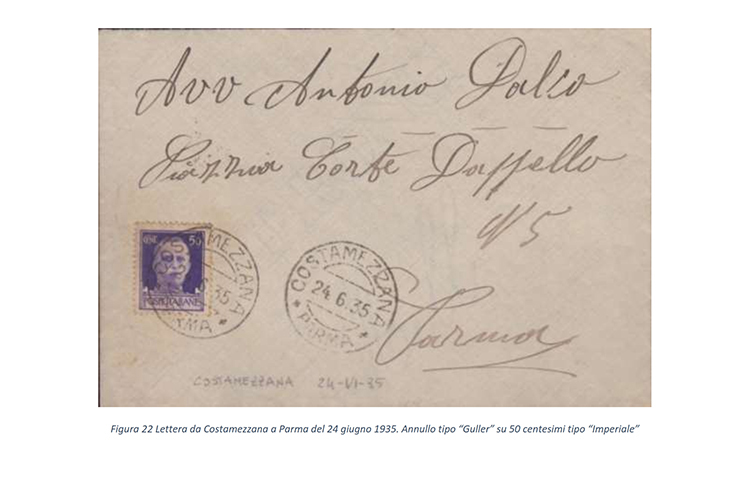 Avv Antonio Dalco
Piazzia Corte Dappello
N 5
Parma
CENT. 50
POSTE ITALIANE
COSTAMEZZANA
6.35
PARMA
COSTAMEZZANA
24.6.35
* PARMA *
COSTAMEZZANA 24-VI-35
Figura 22 Lettera da Costamezzana a Parma del 24 giugno 1935. Annullo tipo “Guller” su 50 centesimi tipo “Imperiale”